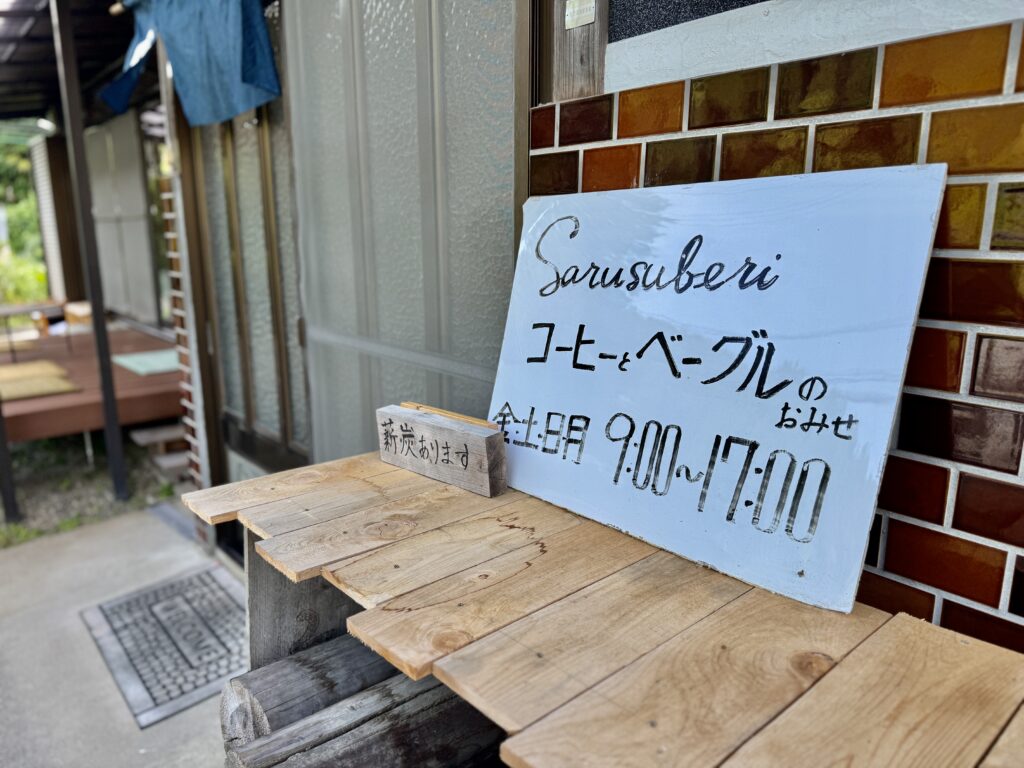 Sarusuberi
コーヒーとベーグルの
おみせ
金土日月 9:00~17:00
薪炭あります